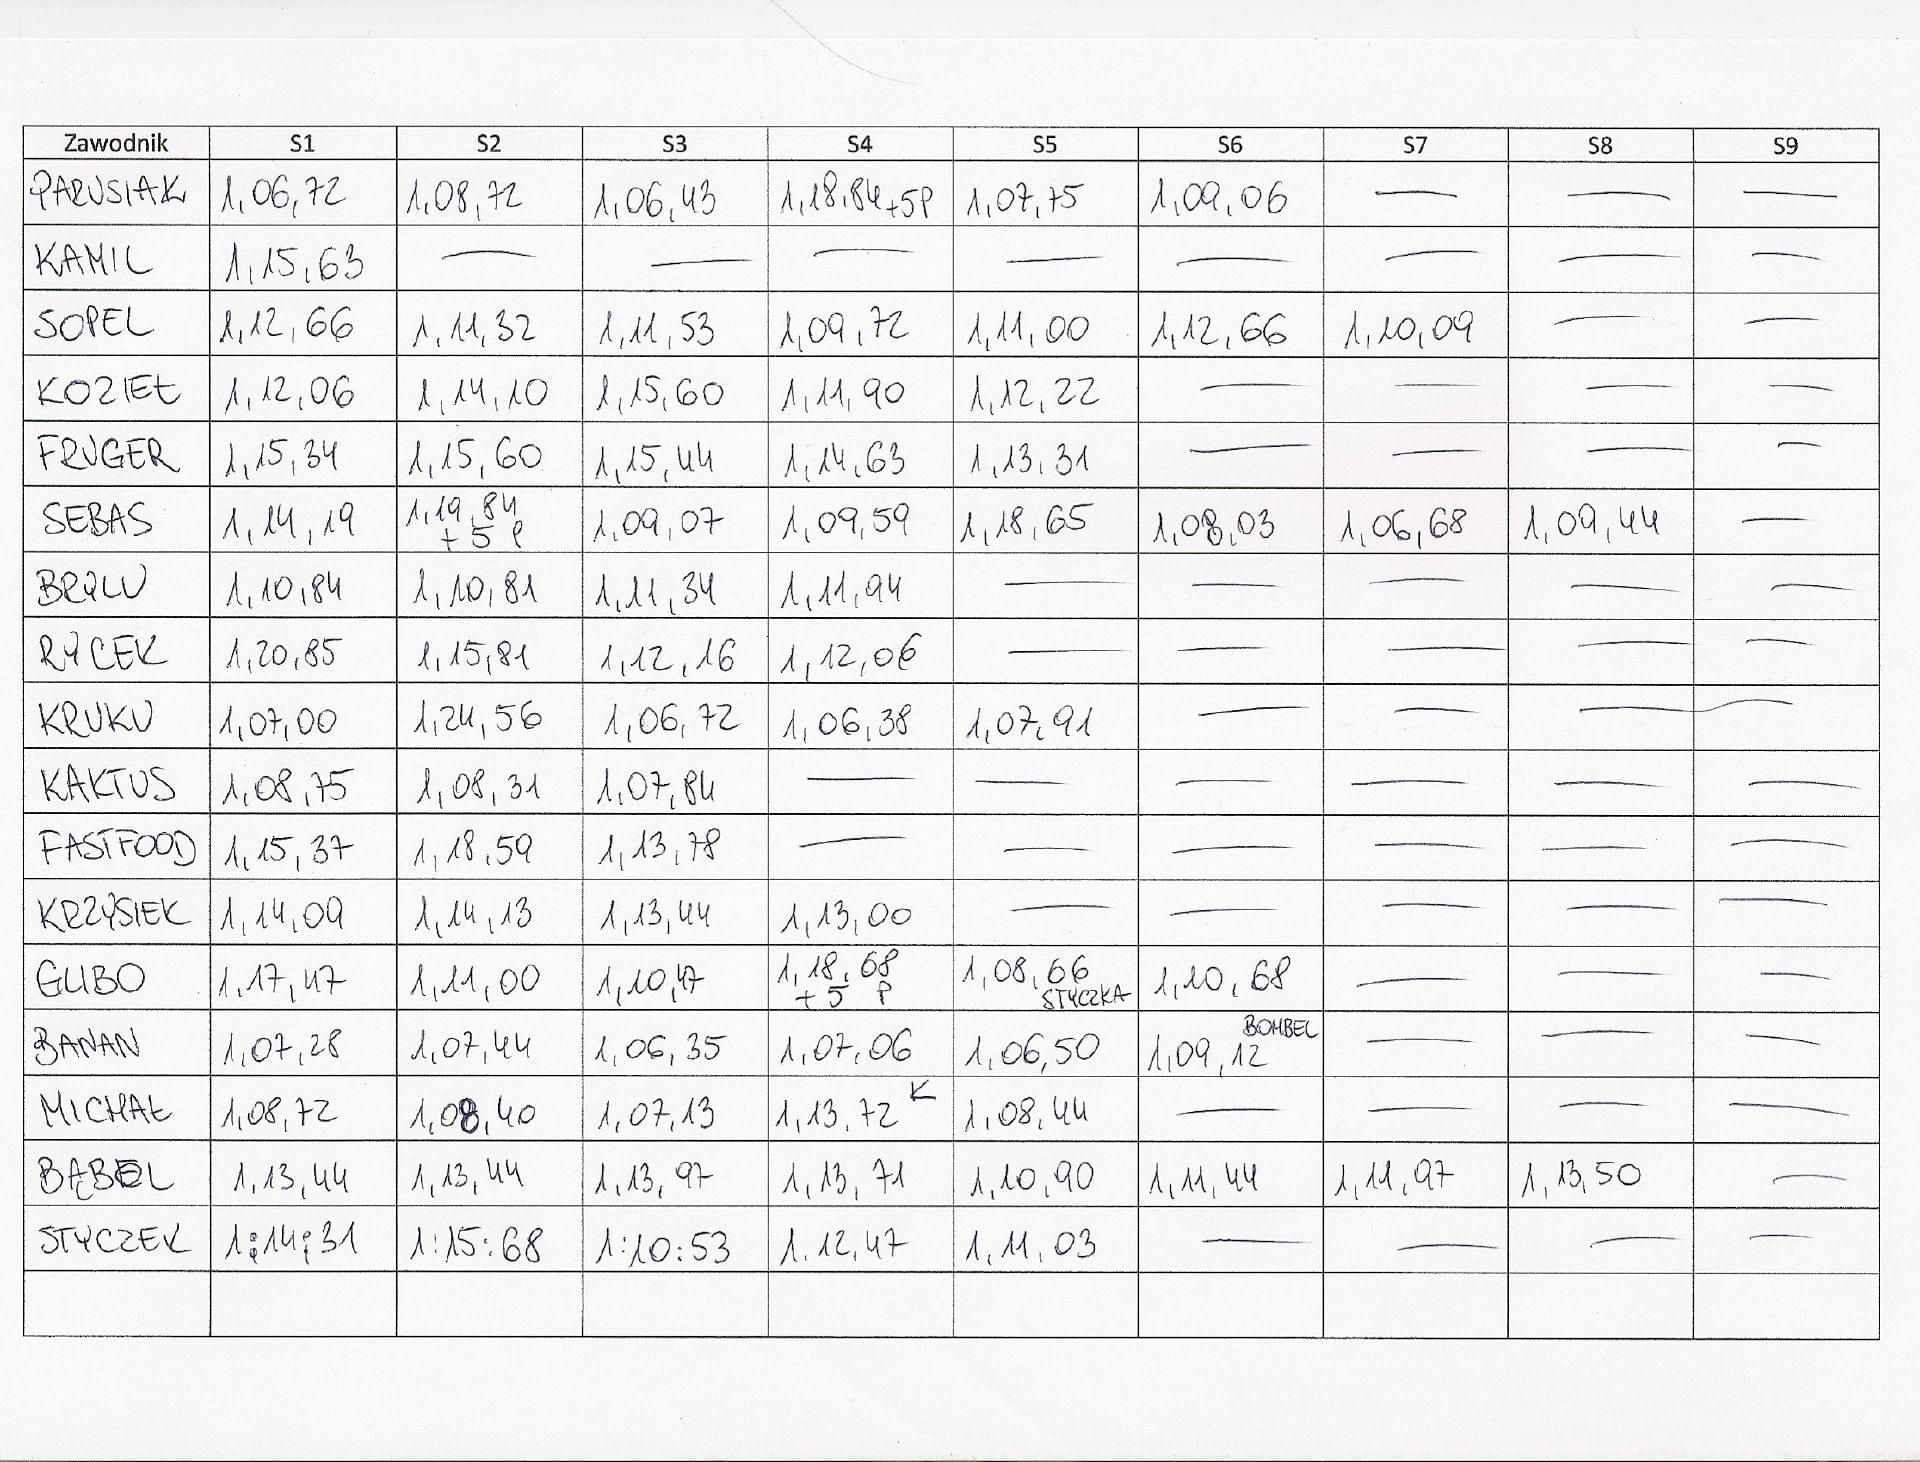 Zawodnik S1 S2 S3 S4 S5 S6 S7 S8 S9
PARUSIAK 1,06,72 1,08,72 1,06,43 1,18,84+5P 1,07,75 1,09,06 — — —
KAMIL 1,15,63 — — — — — — — —
SOPEL 1,12,66 1,11,32 1,11,53 1,09,72 1,11,00 1,12,66 1,10,09 — —
KOZIEŁ 1,12,06 1,14,10 1,15,60 1,11,90 1,12,22 — — — —
FRUGER 1,15,34 1,15,60 1,15,44 1,14,63 1,13,31 — — — —
SEBAS 1,14,19 1,19,84 +5P 1,09,07 1,09,59 1,18,65 1,08,03 1,06,68 1,09,44 —
BRYLU 1,10,84 1,10,81 1,11,34 1,11,94 — — — — —
RYCEK 1,20,85 1,15,81 1,12,16 1,12,06 — — — — —
KRUKU 1,07,00 1,24,56 1,06,72 1,06,38 1,07,91 — — — —
KAKTUS 1,08,75 1,08,31 1,07,84 — — — — — —
FASTFOOD 1,15,37 1,18,59 1,13,78 — — — — — —
KRZYSIEK 1,14,09 1,14,13 1,13,44 1,13,00 — — — — —
GUBO 1,17,47 1,11,00 1,10,47 1,18,68 +5 P 1,08,66 STYCZKA 1,10,68 — — —
BANAN 1,07,28 1,07,44 1,06,35 1,07,06 1,06,50 1,09,12 BOMBEL — — —
MICHAŁ 1,08,72 1,08,40 1,07,13 1,13,72 K 1,08,44 — — — —
BĄBEL 1,13,44 1,13,44 1,13,97 1,13,71 1,10,90 1,11,44 1,11,97 1,13,50 —
STYCZEK 1:14:31 1:15:68 1:10:53 1.12,47 1,11,03 — — — —